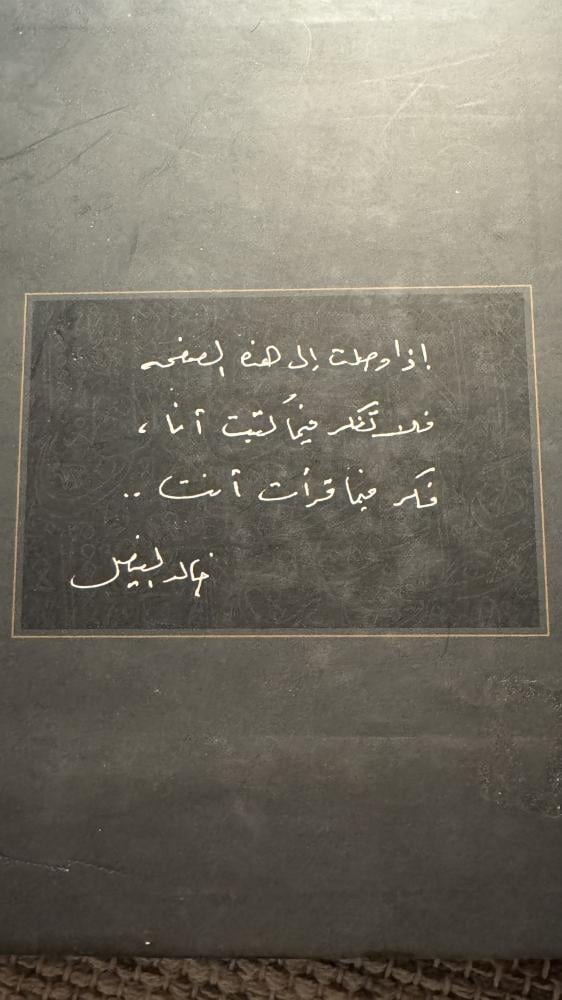 اذا وصلت إلى هذه الصفحه
فلا تفكر فيما كتبت أنا ،
فكر فيما قرأت أنت ..
خالد الفيصل